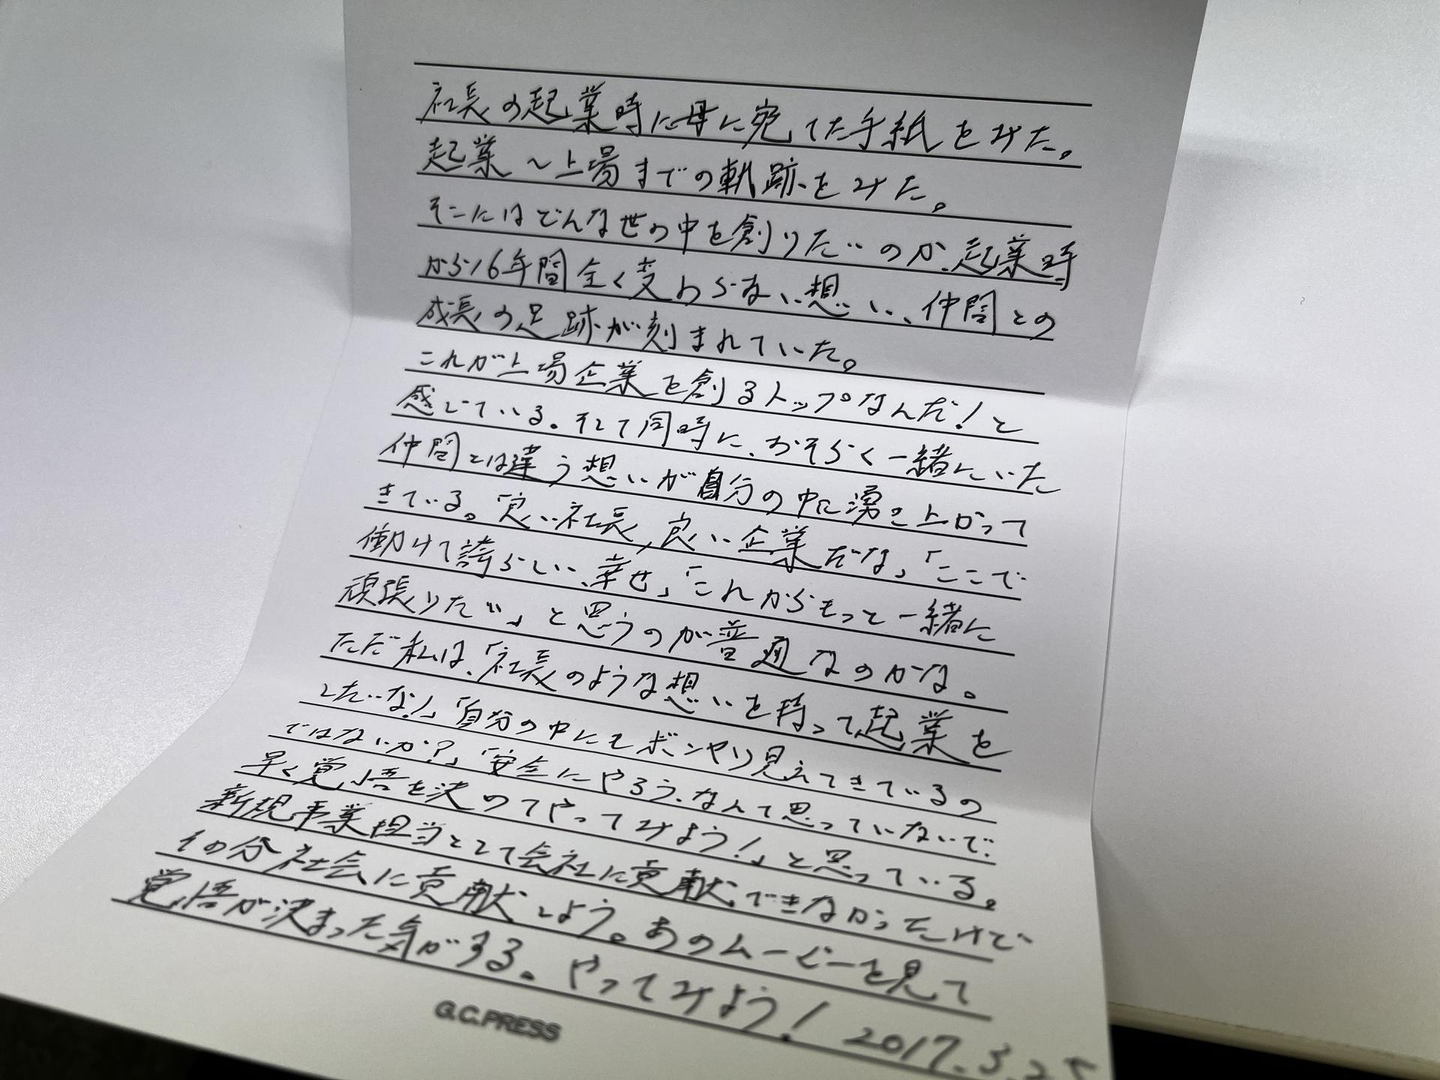 社長の起業時に母に宛てた手紙をみた。
起業〜上場までの軌跡をみた。
そこにはどんな世の中を創りたいのか、起業時
から16年間全く変わらない想い、仲間との
成長の足跡が刻まれていた。
これが上場企業を創るトップなんだ！と
感じている。そして同時に、おそらく一緒にいた
仲間とは違う想いが自分の中に湧き上がって
きている。「良い社長、良い企業だな」「ここで
働けて誇らしい、幸せ」「これからもっと一緒に
頑張りたい」と思うのが普通なのかな。
ただ私は、「社長のような想いを持って起業を
したいな！」「自分の中にもボンヤリ見えてきているの
ではないか？」「安全にやろう、なんて思っていないで、
早く覚悟を決めてやってみよう！」と思っている。
新規事業担当として会社に貢献できなかっただけで
その分社会に貢献しよう。あのムービーを見て
覚悟が決まった気がする。やってみよう！ 2017.3.25
G.C.PRESS